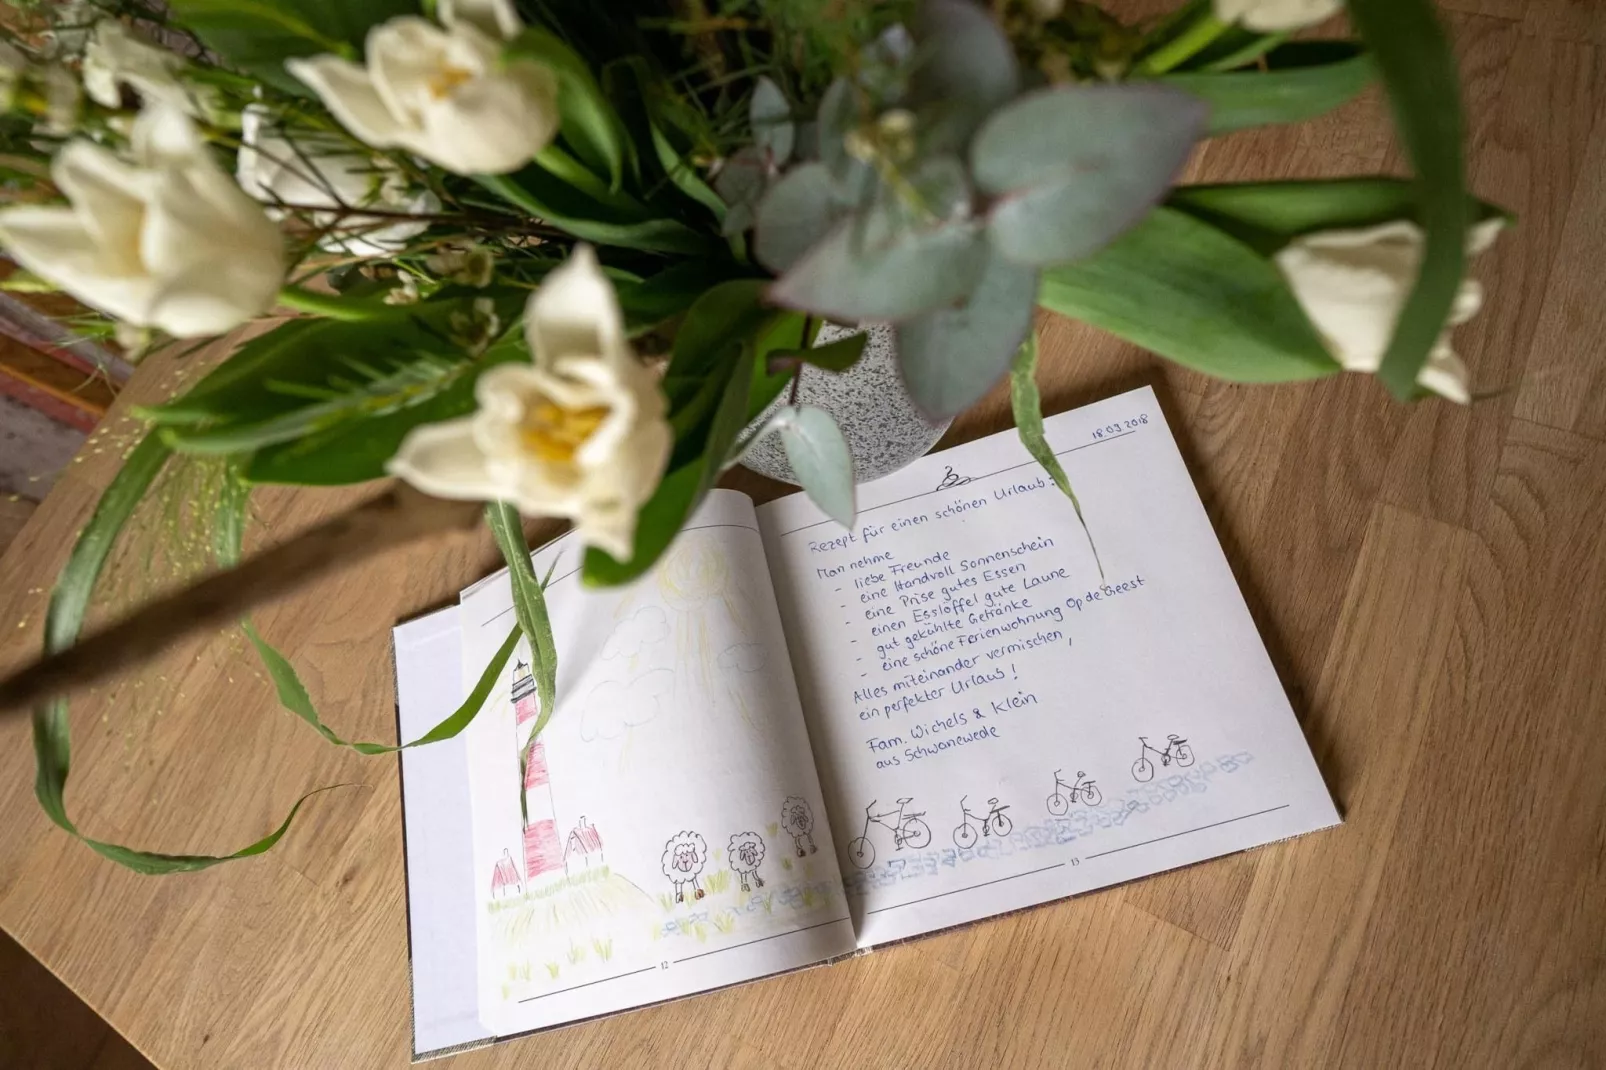 18.09.2018
Rezept für einen schönen Urlaub:
Man nehme
- liebe Freunde
- eine Handvoll Sonnenschein
- eine Prise gutes Essen
- einen Esslöffel gute Laune
- gut gekühlte Getränke
- eine schöne Ferienwohnung Op de Geest
Alles miteinander vermischen,
ein perfekter Urlaub!
Fam. Wichels & Klein
aus Schwanewede
12
13